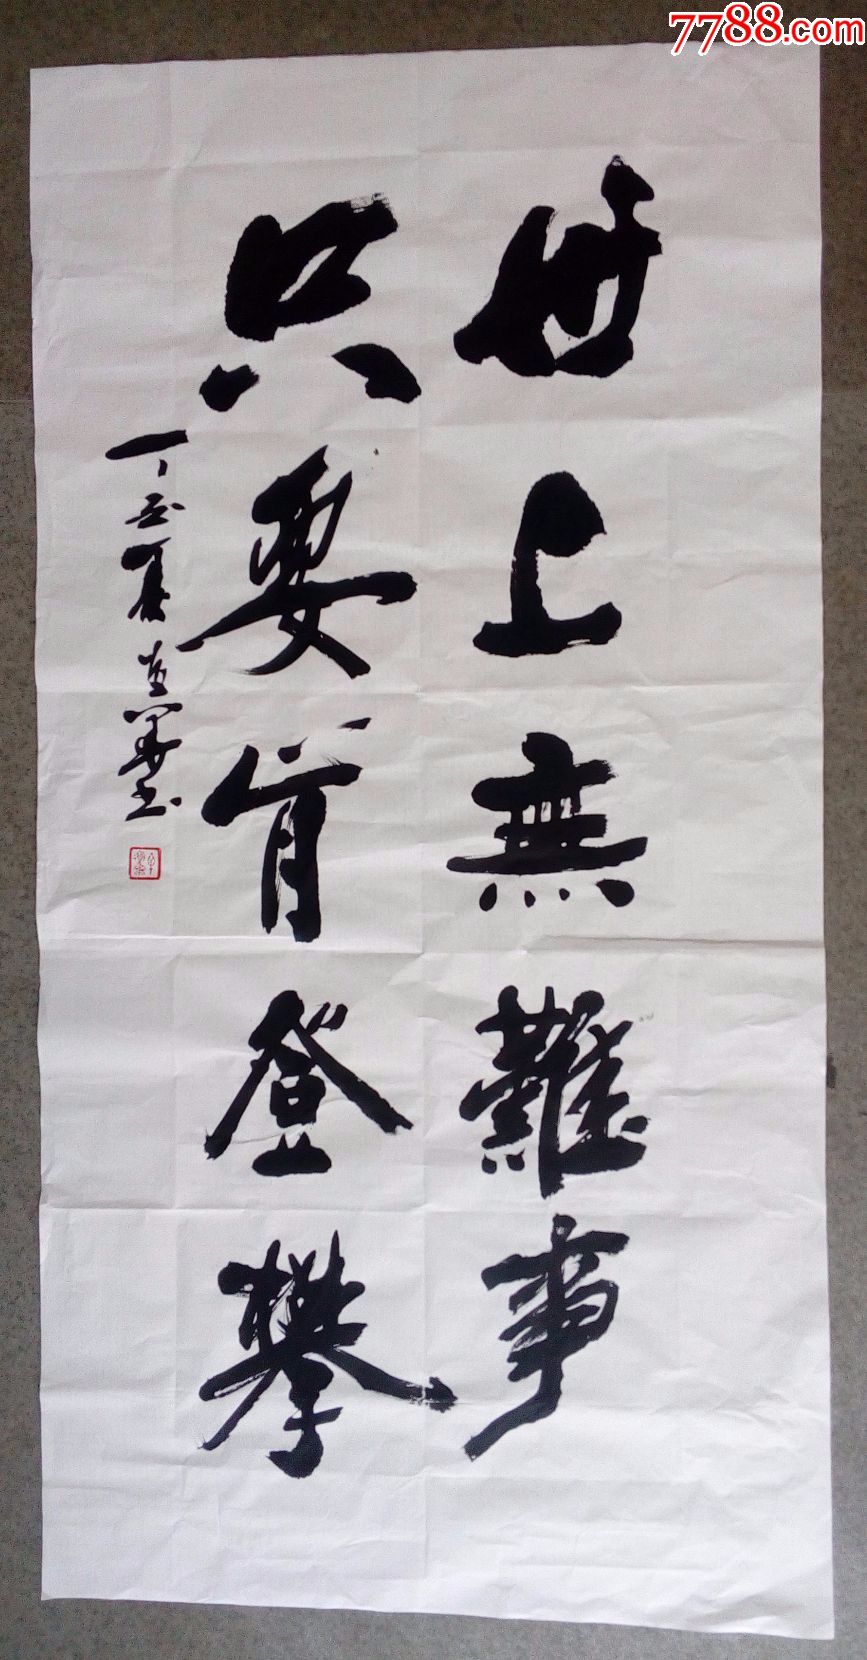 7788.com
世上無難事
只要肯登攀
丁酉夏
書